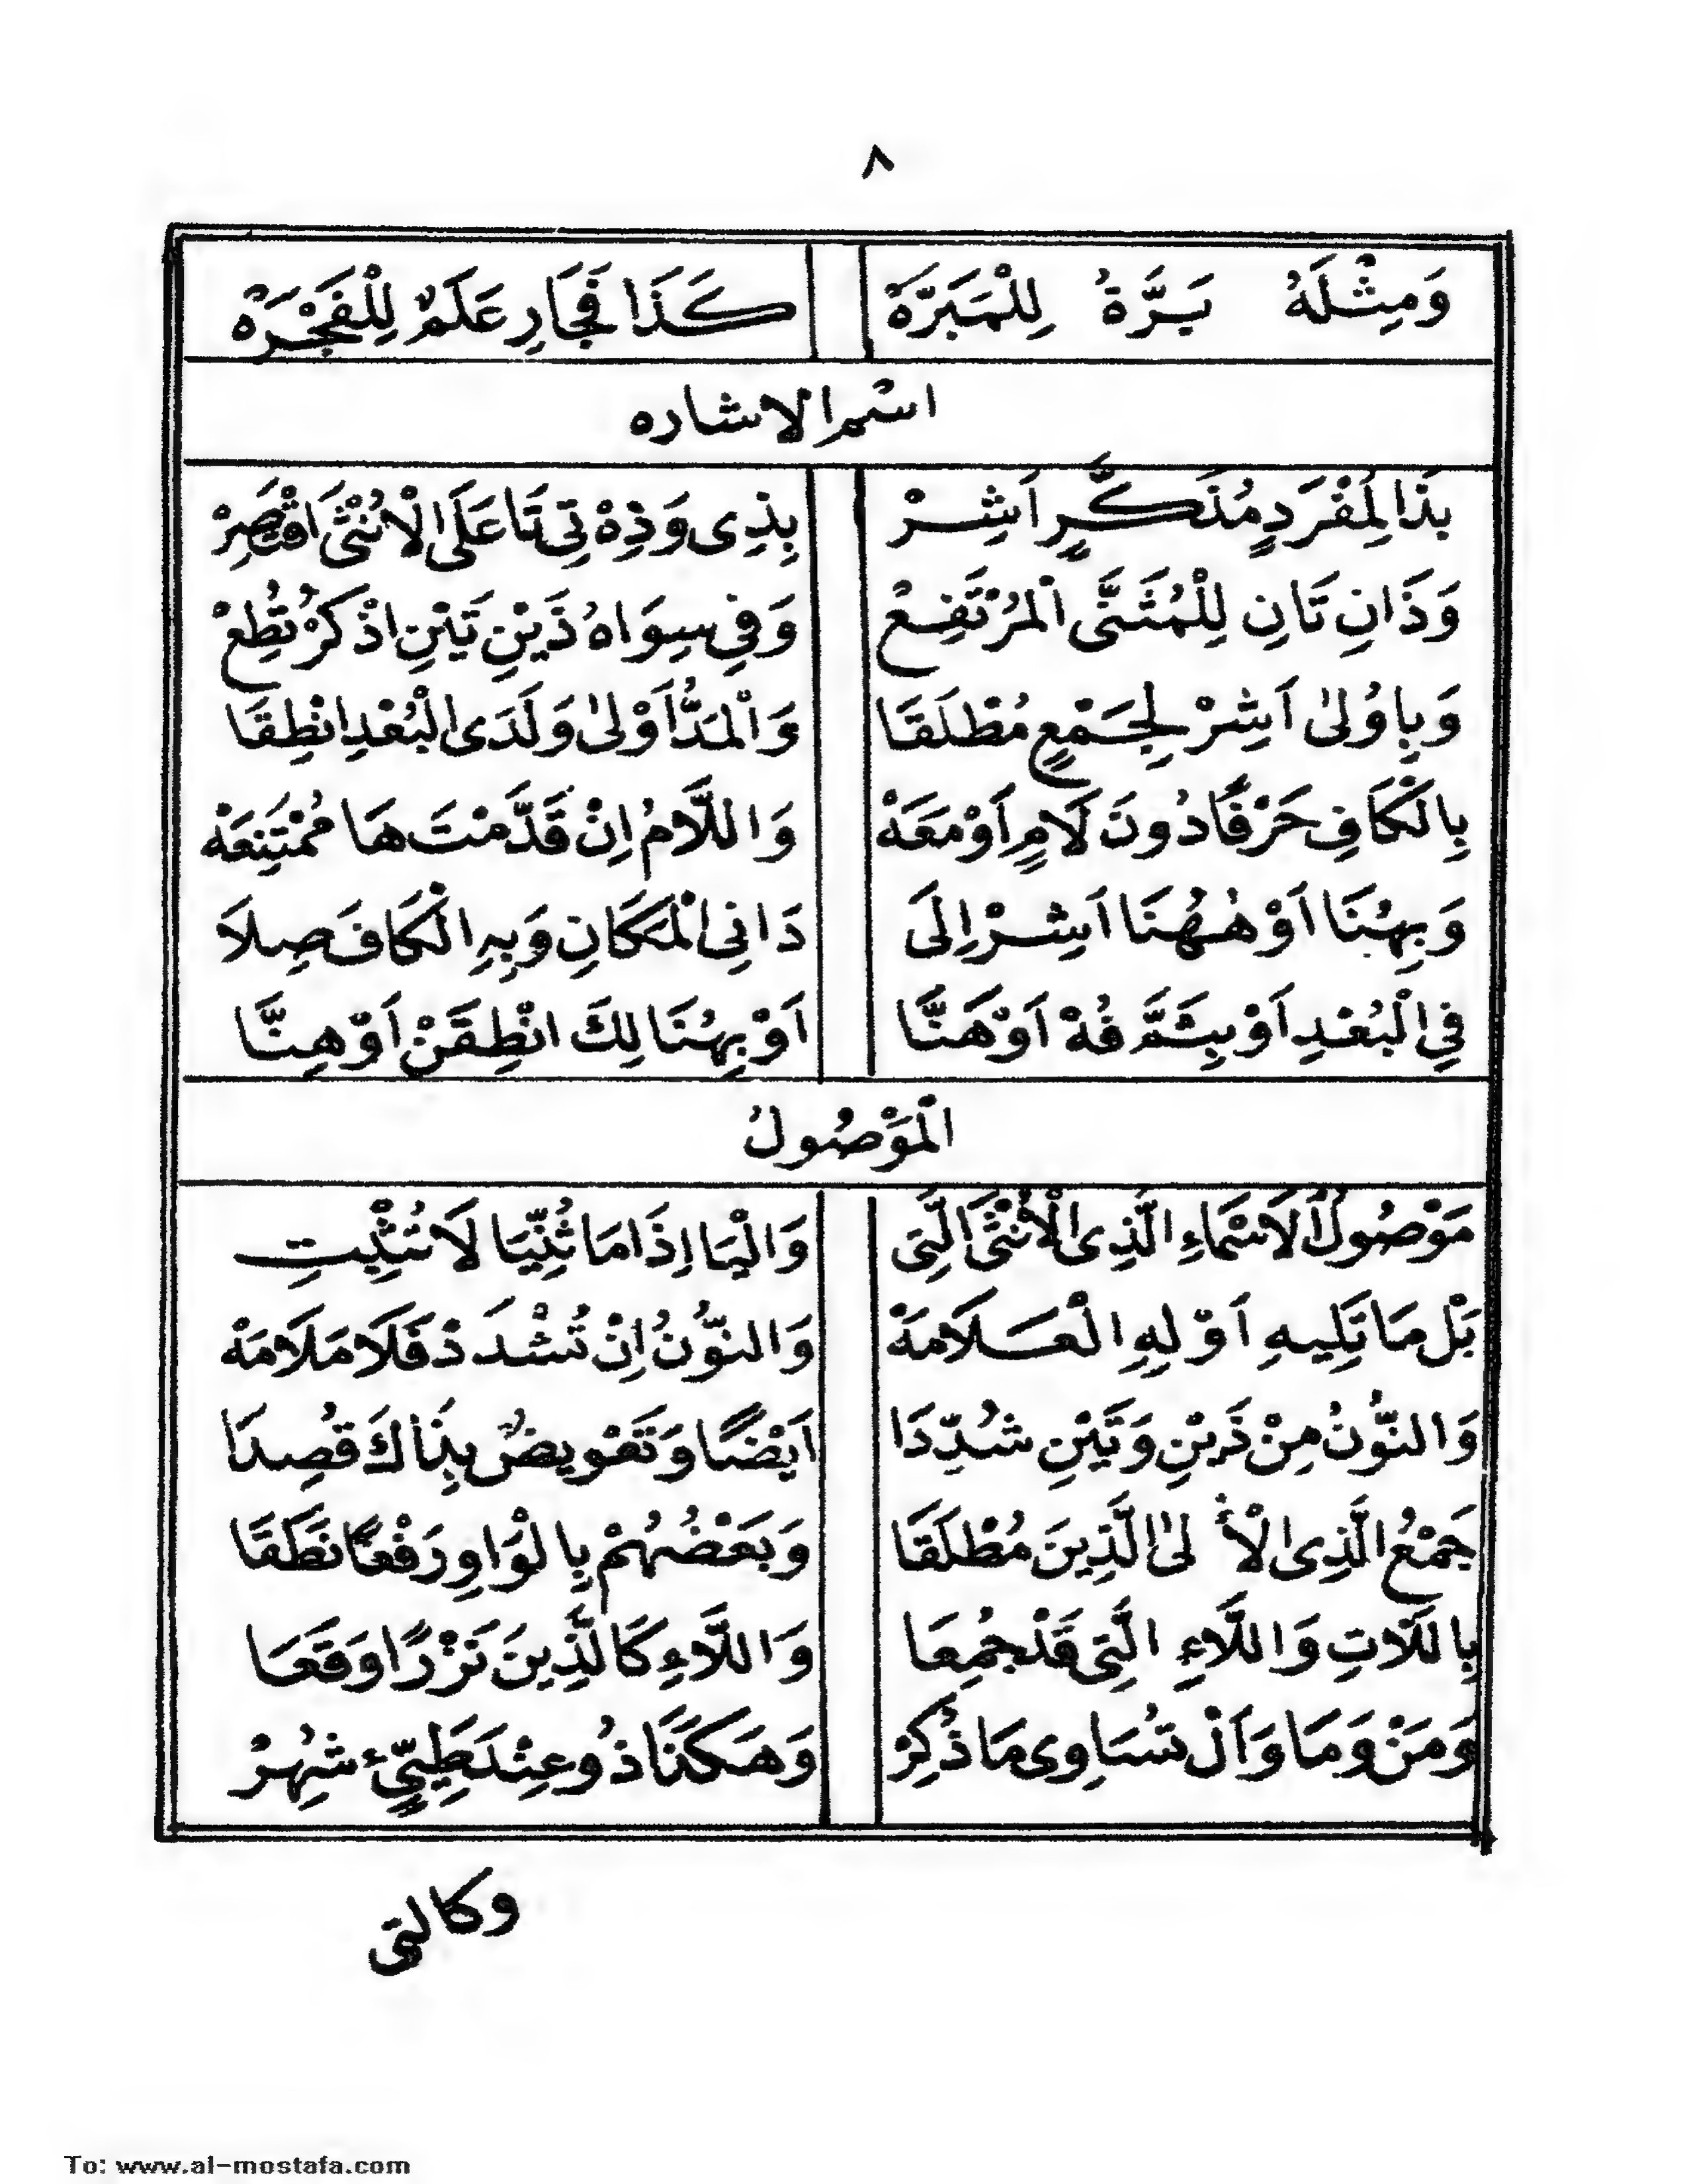 ٨
وَمِثْلُهُ بَرَّةُ لِلْمَبَرَّةْ كَذَا فَجَارِ عَلَمٌ لِلْفَجْرَهْ
اسْم الاشاره
بِذَا لِمُفْرَدٍ مُذَكَّرٍ اَشِرْ بِذِى وَذِهْ تِى تَا عَلَى الْاُنْثَى اقْتَصِرْ
وَذَانِ تَانِ لِلْمُثَنَّى الْمُرْتَفِعْ وَفِي سِوَاهُ ذَيْنِ تَيْنِ اذْكُرْ تُطِعْ
وَبِاُولٰى اَشِرْ لِجَمْعٍ مُطْلَقَا وَالْمَدُّ اَوْلٰى وَلَدَى الْبُعْدِ انْطِقَا
بِالْكَافِ حَرْفًا دُونَ لَامٍ اَوْ مَعَهْ وَاللَّامُ اِنْ قَدَّمْتَ هَا مُمْتَنِعَهْ
وَبِهُنَا اَوْ هٰهُنَا اَشِرْ اِلَى دَانِى الْمَكَانِ وَبِهِ الْكَافَ صِلَا
فِي الْبُعْدِ اَوْ بِثَمَّ فُهْ اَوْ هَنَّا اَوْ بِهُنَالِكَ انْطِقَنْ اَوْ هِنَّا
اَلْمَوْصُولُ
مَوْصُولُ الْاَسْمَاءِ الَّذِى الْاُنْثَى الَّتِى وَالْيَا اِذَا مَا ثُنِّيَا لَا تُثْبِتِ
بَلْ مَا تَلِيهِ اَوْلِهِ الْعَلَامَهْ وَالنُّونُ اِنْ تُشْدَدْ فَلَا مَلَامَهْ
وَالنُّونُ مِنْ ذَيْنِ وَتَيْنِ شُدِّدَا اَيْضًا وَتَعْوِيضٌ بِذَاكَ قُصِدَا
جَمْعُ الَّذِى الْأُلىٰ الَّذِينَ مُطْلَقَا وَبَعْضُهُمْ بِالْوَاوِ رَفْعًا نَطَقَا
بِاللَّاتِ وَاللَّاءِ الَّتِى قَدْ جُمِعَا وَاللَّاءِ كَالَّذِينَ نَزْرًا وَقَعَا
وَمَنْ وَمَا وَاَلْ تُسَاوِى مَا ذُكِرْ وَهَكَذَا ذُو عِنْدَ طَيِّئٍ شُهِرْ
وكالتى
To: www.al-mostafa.com